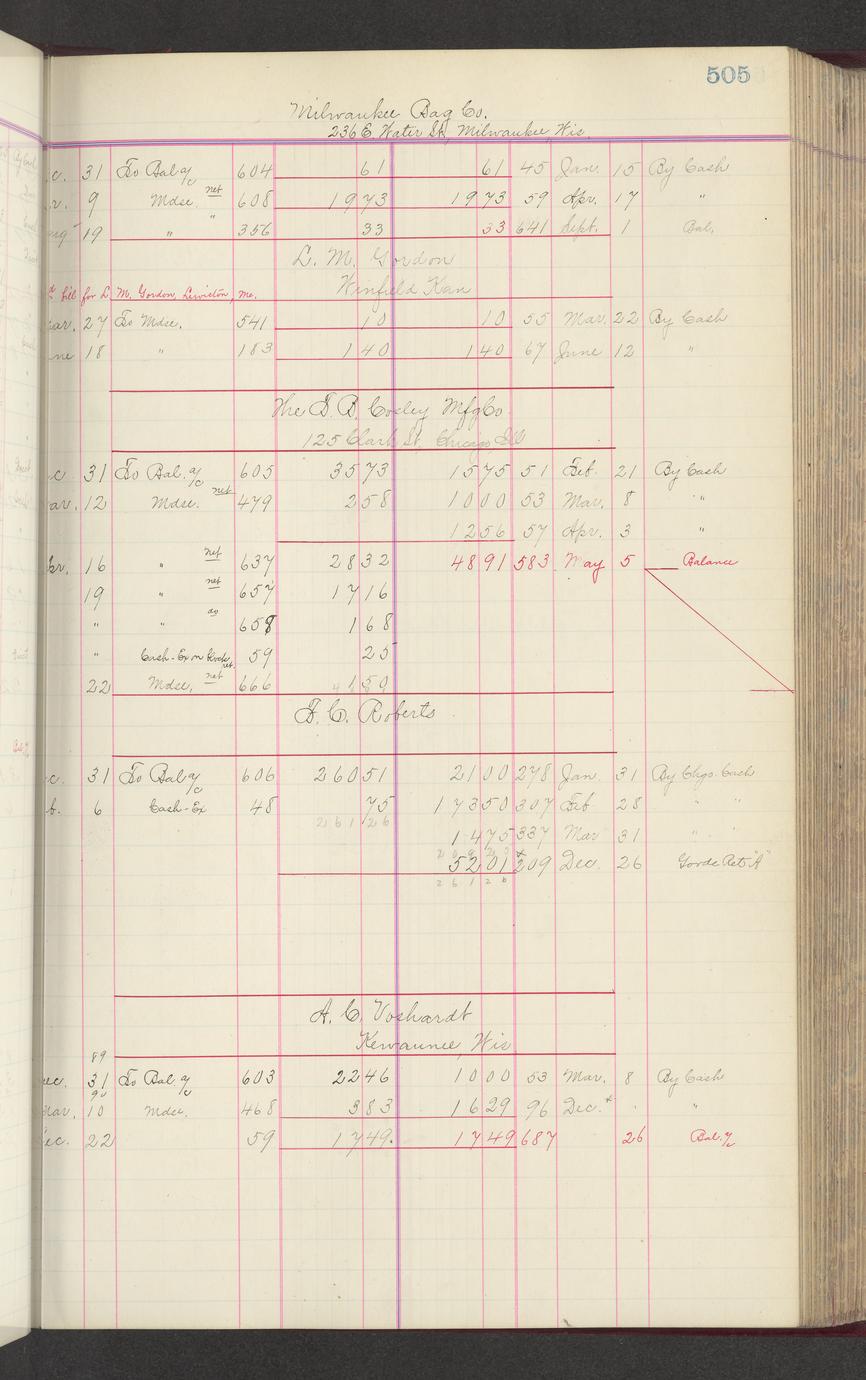 505
Milwaukee Bag Co.
236 E. Water St, Milwaukee, Wis.
c. 31 To Bal a/c 604 61 61 45 Jan. 15 By Cash
r. 9 Mdse. net 608 1973 1973 59 Apr. 17 "
ug 19 " " 356 33 33 641 Sept. 1 Bal.
L. M. Gordon
Winfield Kan
bill for L. M. Gordon, Lewiston, Me.
ar. 27 To Mdse. 541 10 10 55 Mar. 22 By Cash
ne 18 " 183 140 140 67 June 12 "
The S. B. Cosley Mfg Co.
125 Clark St. Chicago Ill
c 31 To Bal. a/c 605 3573 1575 51 Feb. 21 By Cash
ar. 12 Mdse. net 479 258 1000 53 Mar. 8 "
1256 57 Apr. 3 "
pr. 16 " net 637 2832 4891 583 May 5 Balance
19 " net 657 1716
" " do 658 168
" Cash-Ex on 59 25
22 Mdse, net 666 150
F. C. Roberts
c. 31 To Bal a/c 606 26051 2100 278 Jan. 31 By Chgs. Cash
b. 6 Cash-Ex 48 75 17350 307 Feb 28 " "
26126
1475 337 Mar 31 " "
5201 209 Dec. 26 "A"
26126
A. C. Voshardt
Kewaunee, Wis
89
ec. 31 To Bal a/c 603 2246 1000 53 Mar. 8 By Cash
90
Mar. 10 Mdse. 468 383 1629 96 Dec. "
ec. 22 59 1749. 1749 687 26 Bal. a/c